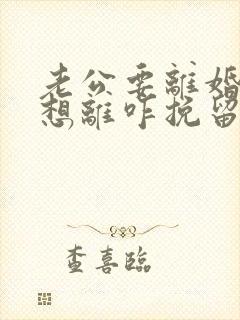 老公要離婚
想離咋挽留
查喜臨